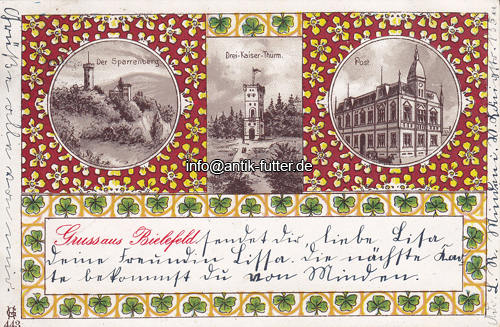 Der Sparrenberg.
Drei-Kaiser-Thurm.
Post
info@antik-futter.de
Gruss aus Bielefeld. sendet dir liebe Lisa
deine Freundin Lissa. die nächste Kar
te bekommst du von Minden.
Grüße alle von mir
443